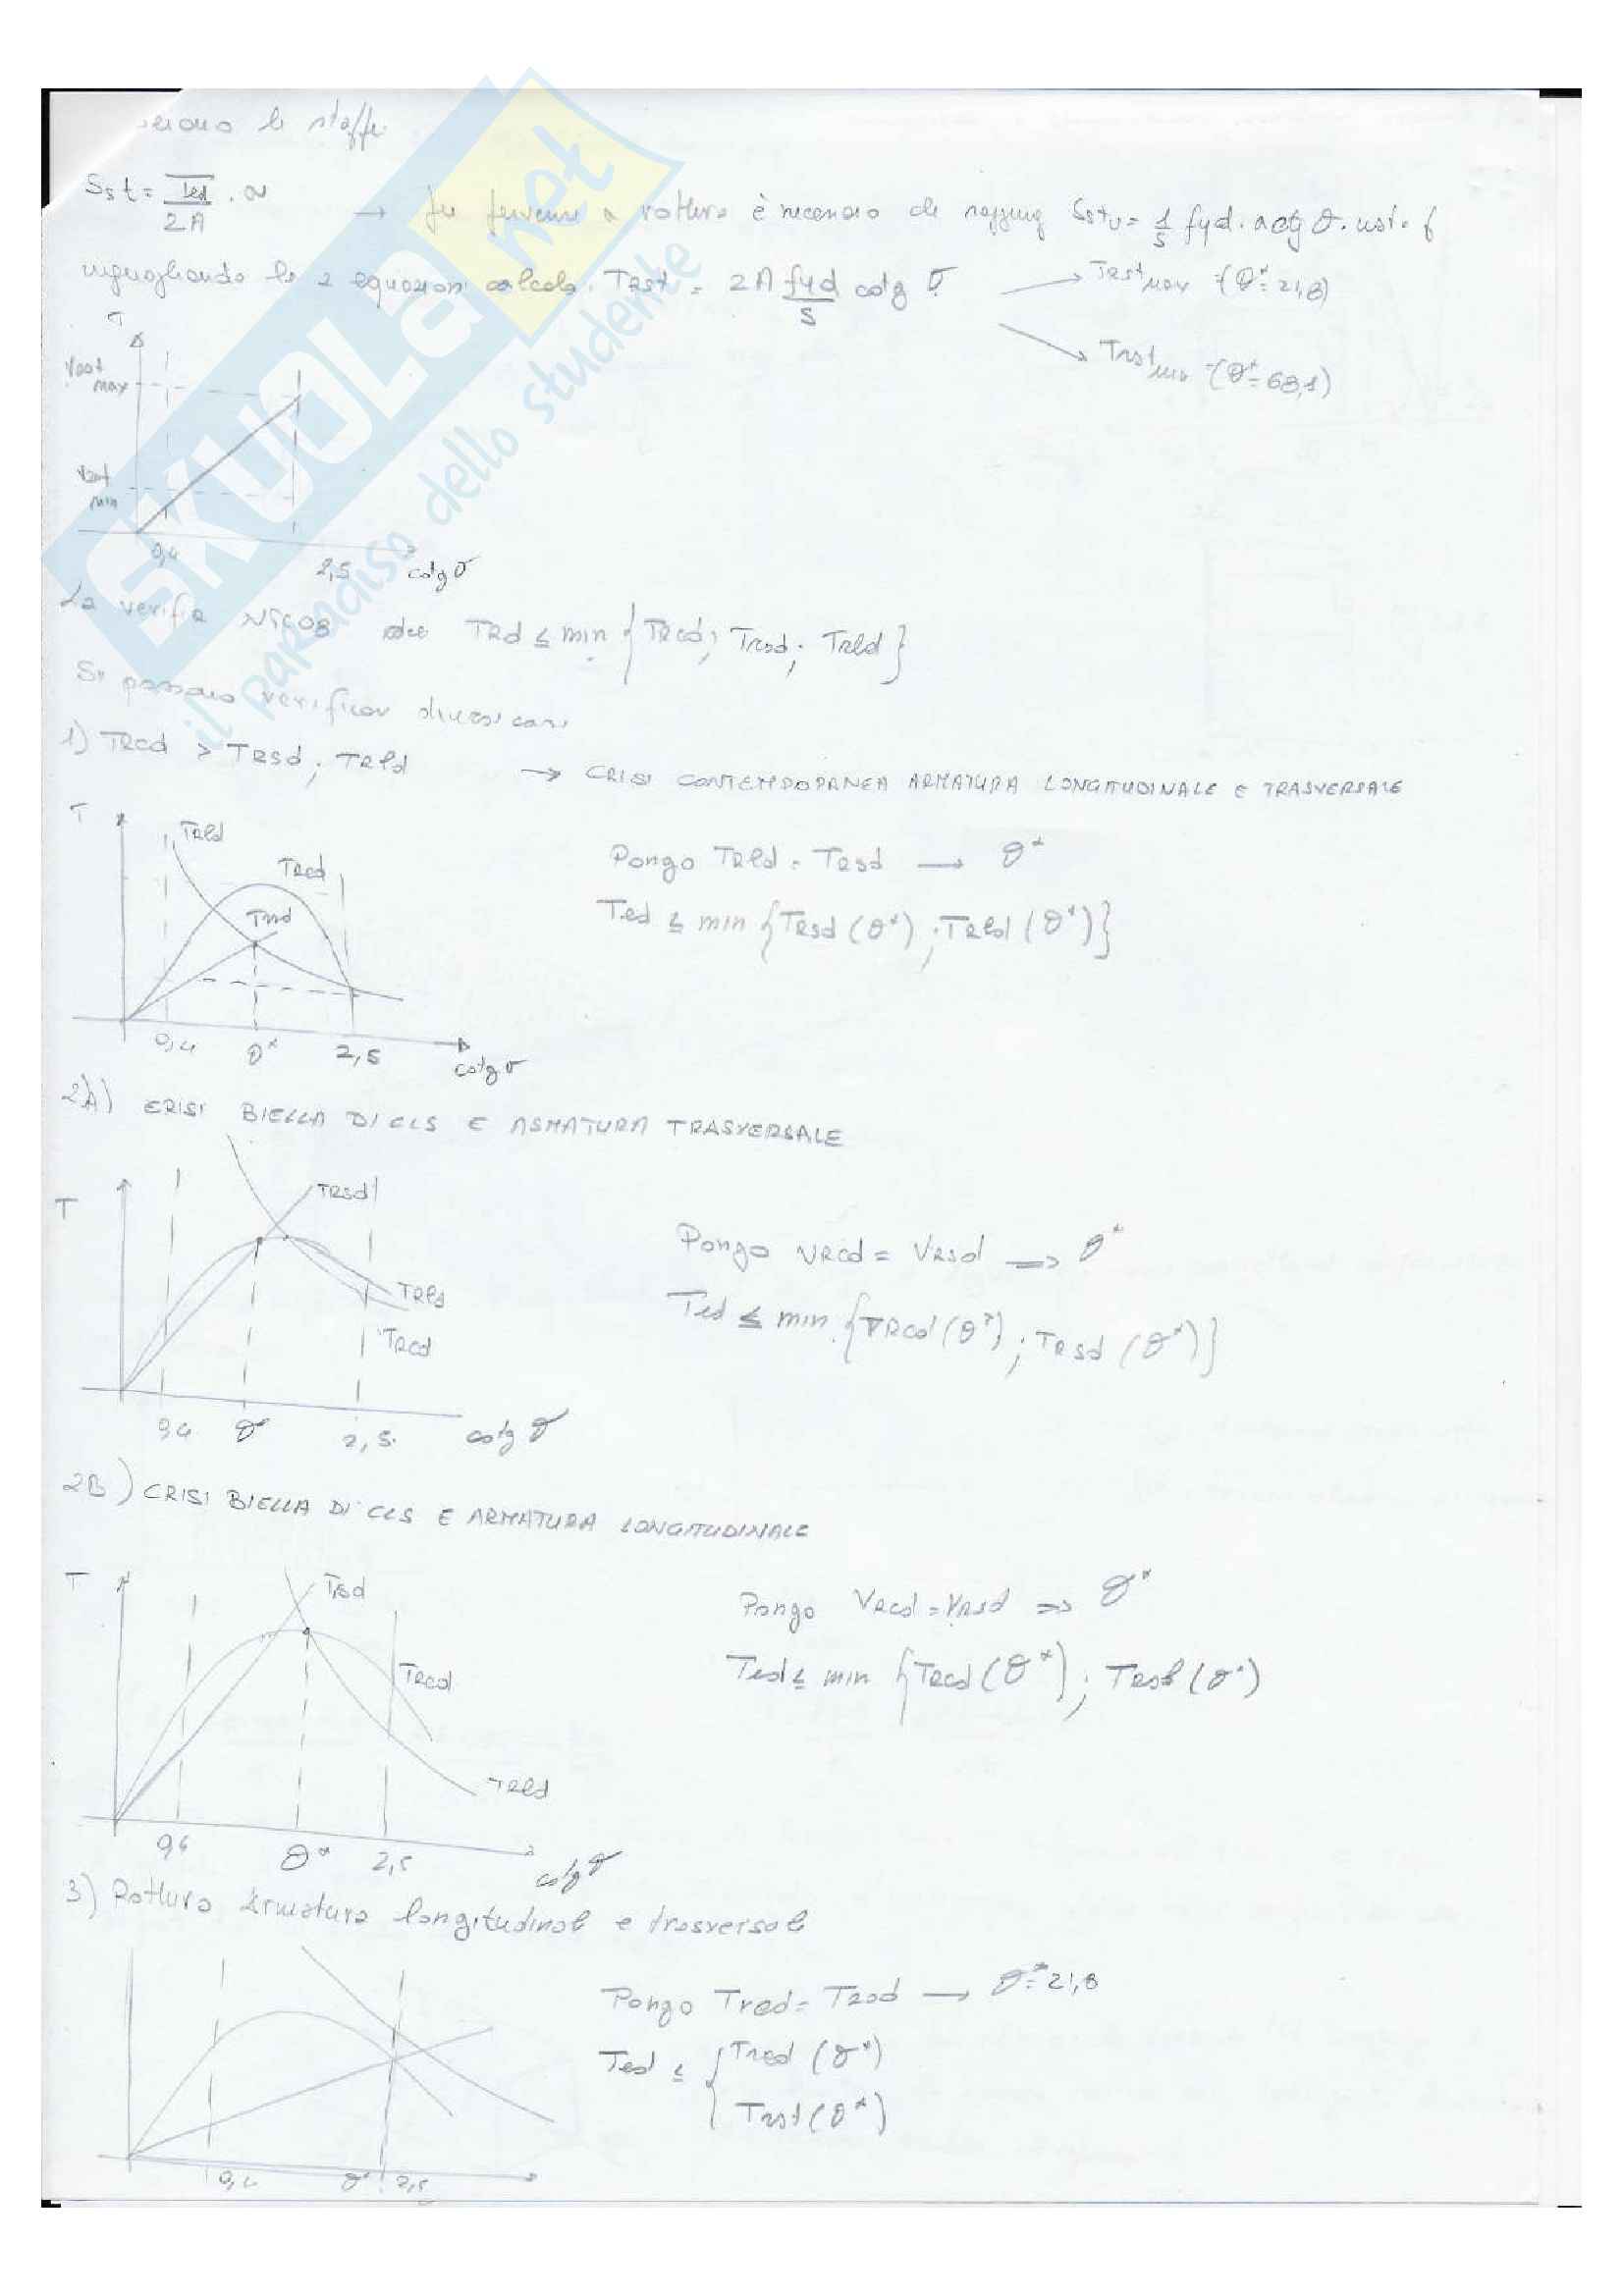 le staffe.
Sst = Ted/2A ·
→ Per pervenire a rottura è necessario che Sstu = 1/s fyd · a ctg θ ·
uguagliando le 2 equazioni calcolo. Trst = 2A fyd/s cotg θ
Trst max (θ*= 21,8)
Trst min (θ*= 68,1)
T
max
min
0,4
2,5
cotg θ
La verifica NTC08 TRd ≤ min {TRcd; Trsd; TRld}
Si possono verificare diversi casi
1) TRcd > TRsd; TRld → CRISI CONTEMPORANEA ARMATURA LONGITUDINALE E TRASVERSALE
T
TRld
TRcd
Trsd
0,4
θ*
2,5
cotg θ
Pongo TRld = TRsd → θ*
Ted ≤ min {TRsd (θ*); TRld (θ*)}
2A) CRISI BIELLA DI CLS E ARMATURA TRASVERSALE
T
TRsd
TRld
TRcd
0,4
θ*
2,5
cotg θ
Pongo VRcd = VRsd → θ*
Ted ≤ min {TRcd (θ*); TRsd (θ*)}
2B) CRISI BIELLA DI CLS E ARMATURA LONGITUDINALE
T
Trsd
TRcd
TRld
0,4
θ*
2,5
cotg θ
Pongo VRcd = VRsd ⇒ θ*
Ted ≤ min {TRcd (θ*); (θ*)
3) Rottura Armatura longitudinale e trasversale
0,4
θ*
2,5
Pongo Trcd = Trsd → θ*= 21,8
Ted ≤ { Trcd (θ*)
Trst (θ*)
SKUOLA.net
il paradiso dello studente